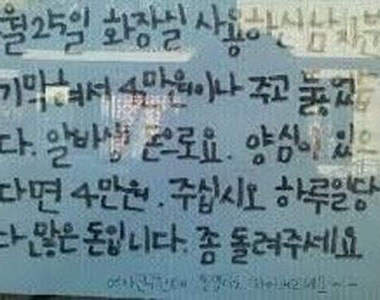 월 25일 화장실 사용하신 남자분
기막혀서 4만원이나 주고 뚫었
다. 알바생 돈으로요. 양심이 있으
다면 4만원. 주십시오 하루일당
다 많은 돈입니다. 좀 돌려주세요